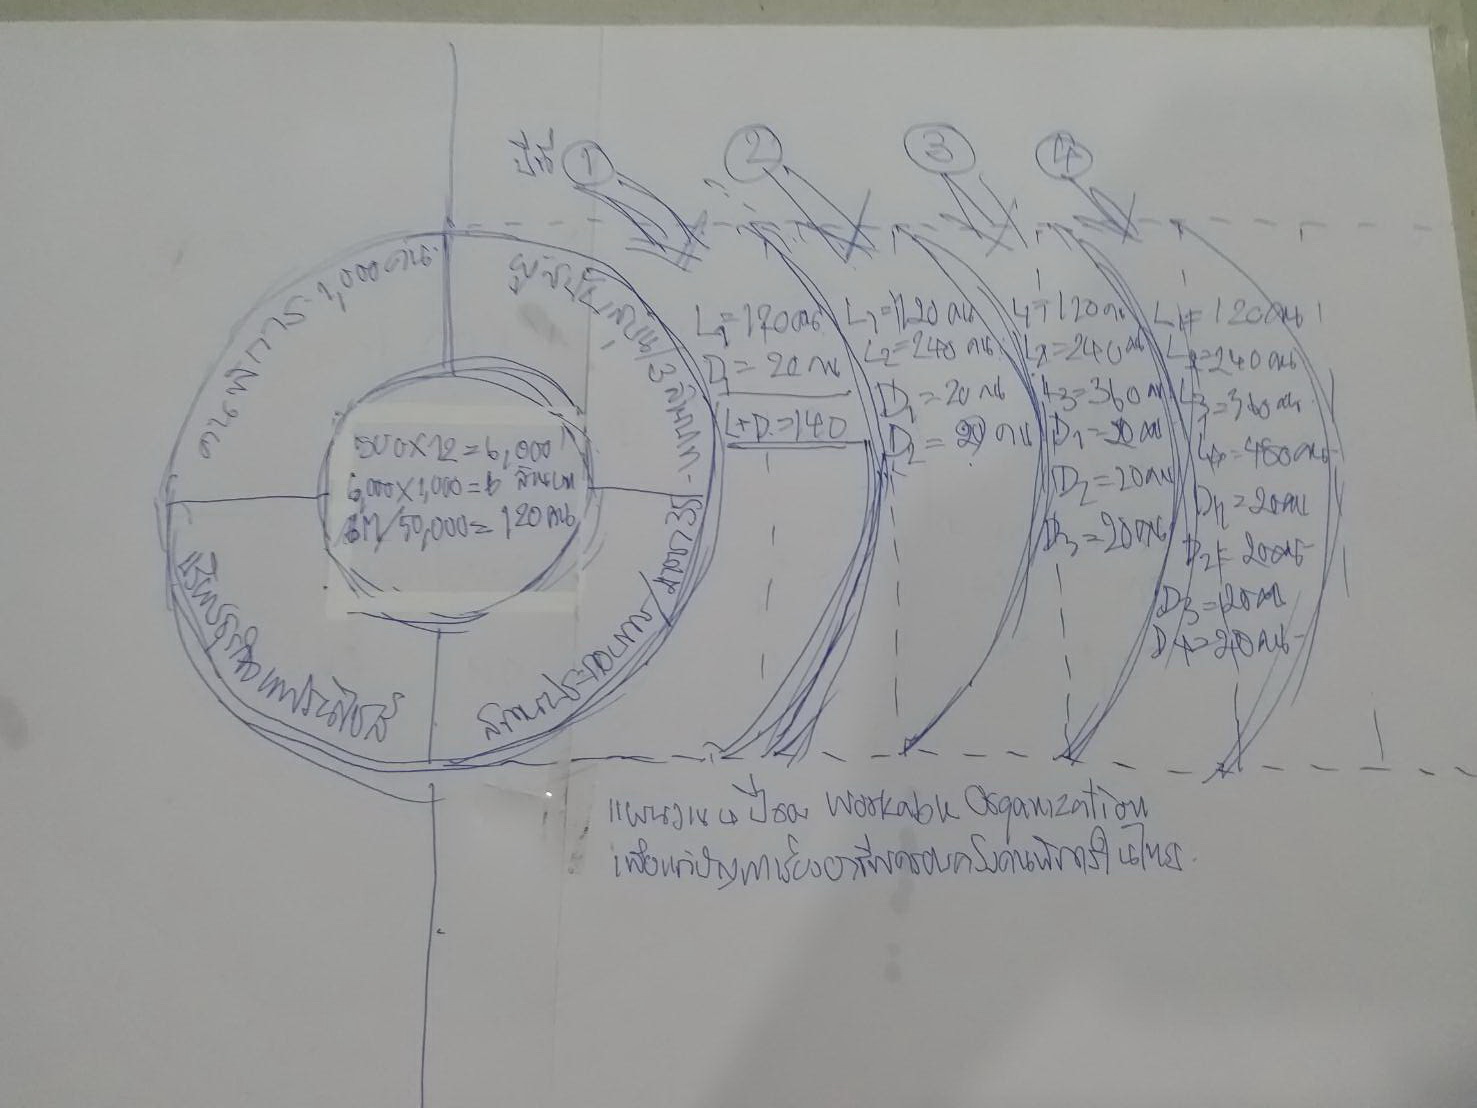 ปีที่ ① ② ③ ④
คนพิการ 1,000 คน
500x12=6,000
6,000x1,000=6 ล้านบาท
6M/50,000=120 คน
L1=120คน
D1=20 คน
L+D=140
L1=120 คน
L2=240 คน
D1=20 คน
D2=20 คน
L1=120 คน
L2=240 คน
L3=360 คน
D1=20 คน
D2=20คน
D3=20คน
L1=120คน
L2=240คน
L3=360คน
L4=480คน
D1=20คน
D2=20คน
D3=20คน
D4=20คน
แผนงาน 4 ปีของ Workable Organization
เพื่อแก้ปัญหาเรื่องอาชีพครอบครัวคนพิการในไทย